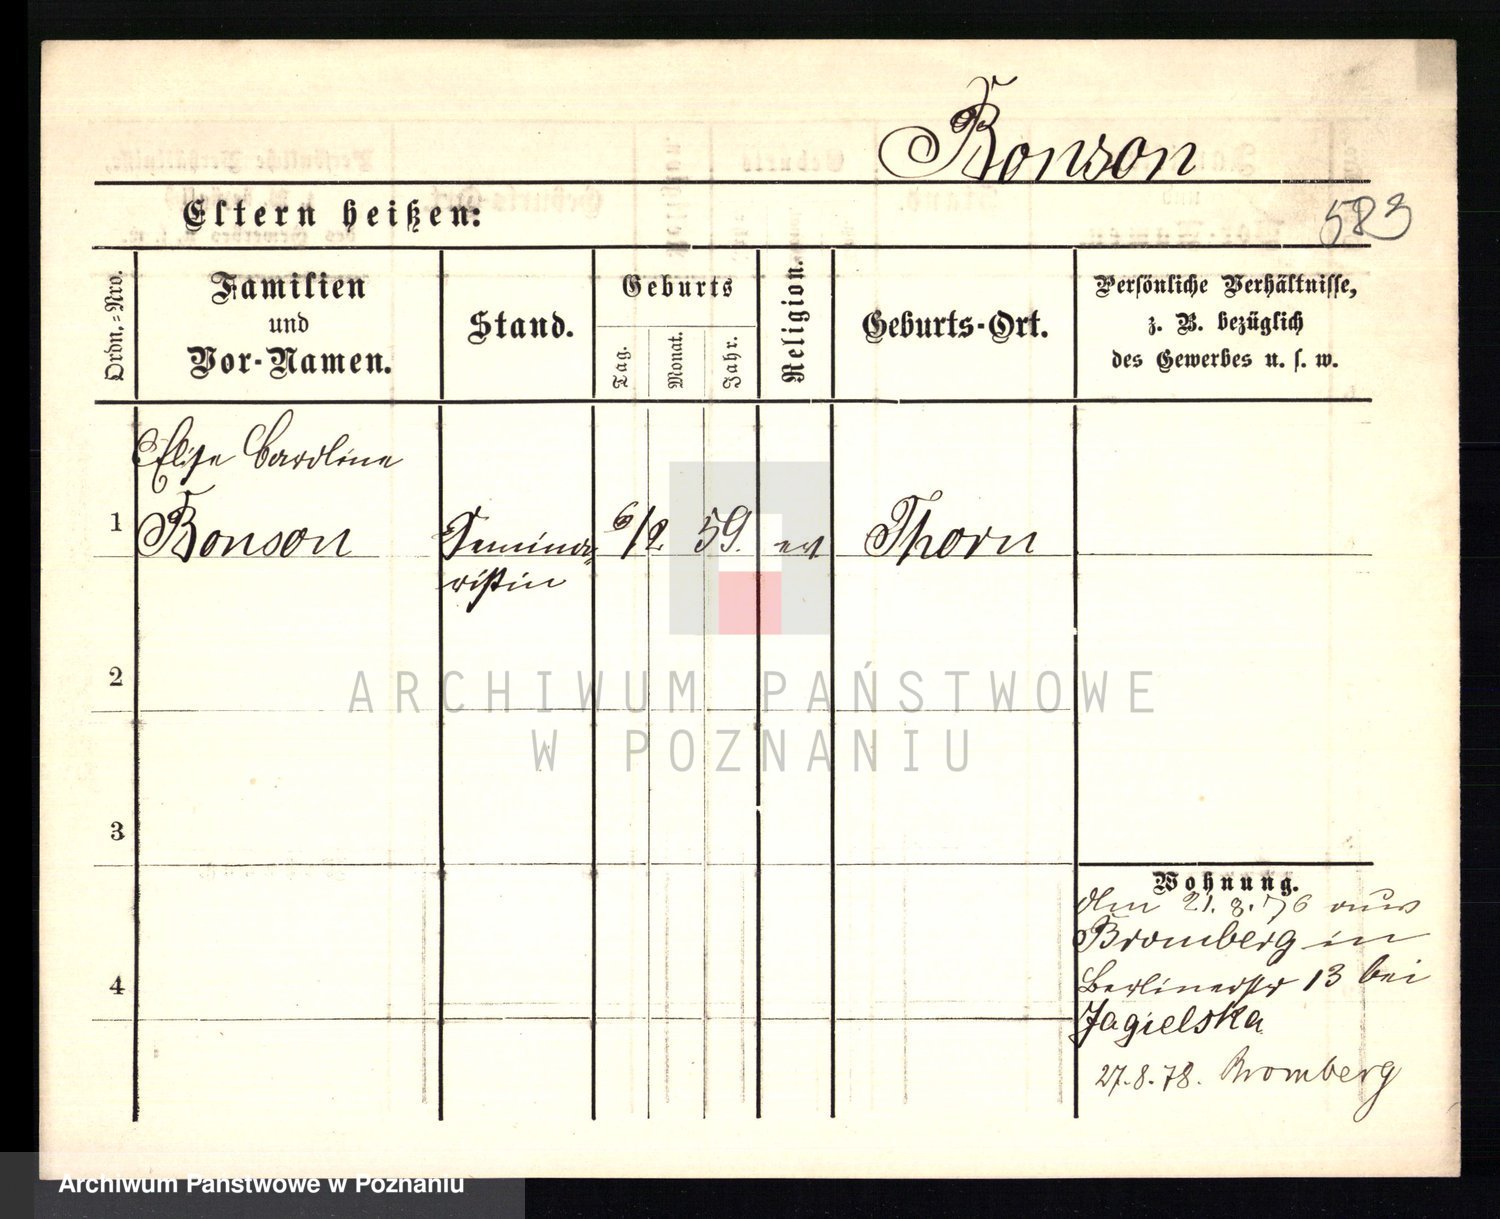 Bonson
Eltern heißen:
583
Ordn.-Nro.
Familien
und
Vor-Namen.
Stand.
Geburts
Tag.
Monat.
Jahr.
Religion.
Geburts-Ort.
Persönliche Verhältnisse,
z. B. bezüglich
des Gewerbes u. s. w.
Elise Caroline
1 Bonson Semina= 6/2 59. ev Thorn
ristin
2
3
4
Wohnung.
Am 21.8.76 aus
Bromberg in
Berlinerstr 13 bei
Jagielska
27.8.78. Bromberg
ARCHIWUM PAŃSTWOWE
W POZNANIU
Archiwum Państwowe w Poznaniu